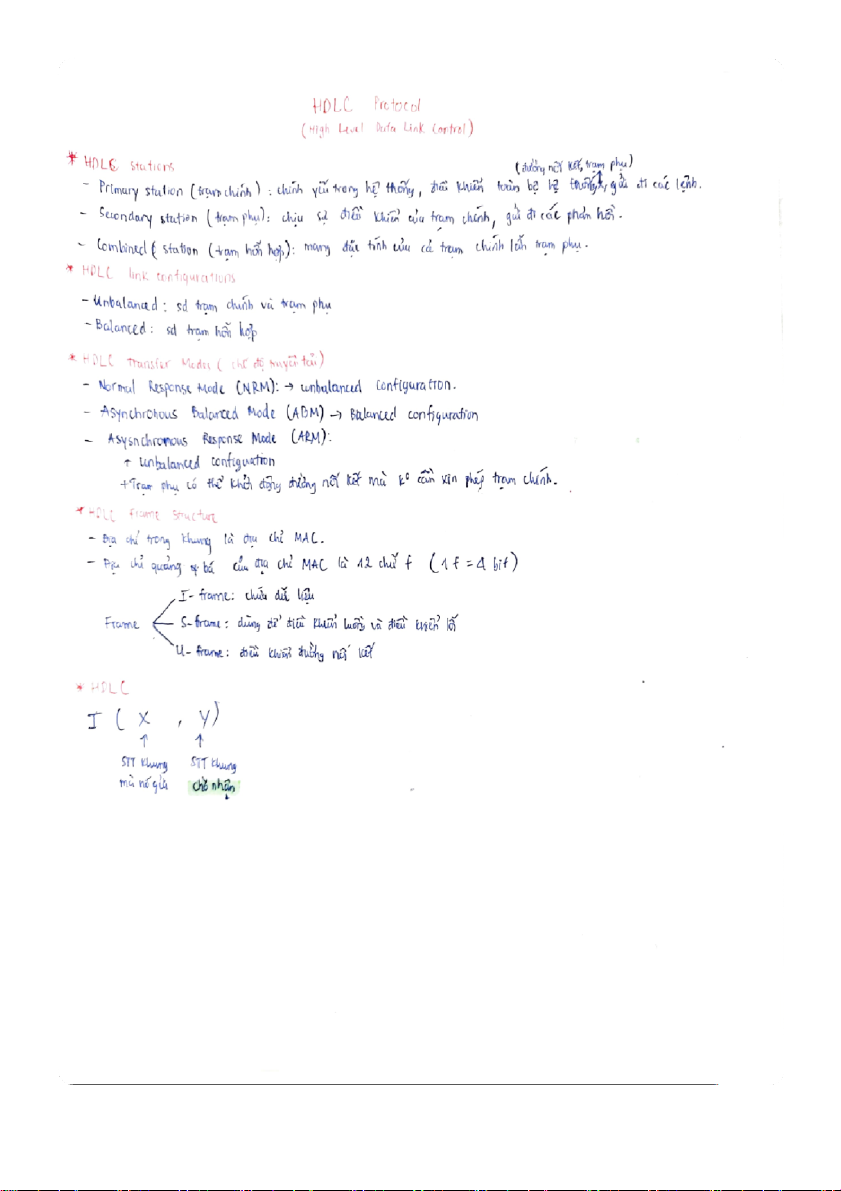 HDLC Protocol
(High Level Data Link Control)
* HDLC Stations
(đường nối kết, trạm phụ)
- Primary station (trạm chính): chính yếu trong hệ thống, điều khiển toàn bộ hệ thống, gửi đi các lệnh.
- Secondary station (trạm phụ): chịu sự điều khiển của trạm chính, gửi đi các phản hồi.
- Combined station (trạm hỗn hợp): mang đặc tính của cả trạm chính lẫn trạm phụ.
* HDLC link configurations
- Unbalanced: sd trạm chính và trạm phụ
- Balanced: sd trạm hỗn hợp
* HDLC Transfer Modes (chế độ truyền tải)
- Normal Response Mode (NRM): → unbalanced configuration.
- Asynchronous Balanced Mode (ABM) → Balanced configuration
- Asysnchromous Response Mode (ARM):
+ unbalanced configuration
+ Trạm phụ có thể khởi động đường nối kết mà ko cần xin phép trạm chính.
* HDLC frame structure
- Địa chỉ trong khung là địa chỉ MAC.
- Địa chỉ quảng bá của địa chỉ MAC là 12 chữ f (1 f = 4 bit)
I- frame: chứa dữ liệu
Frame S- frame: dùng để điều khiển luồng và điều khiển lỗi
U- frame: điều khiển đường nối kết
* HDLC
I ( X , Y)
↑ ↑
STT khung STT khung
mà nó gửi chờ nhận